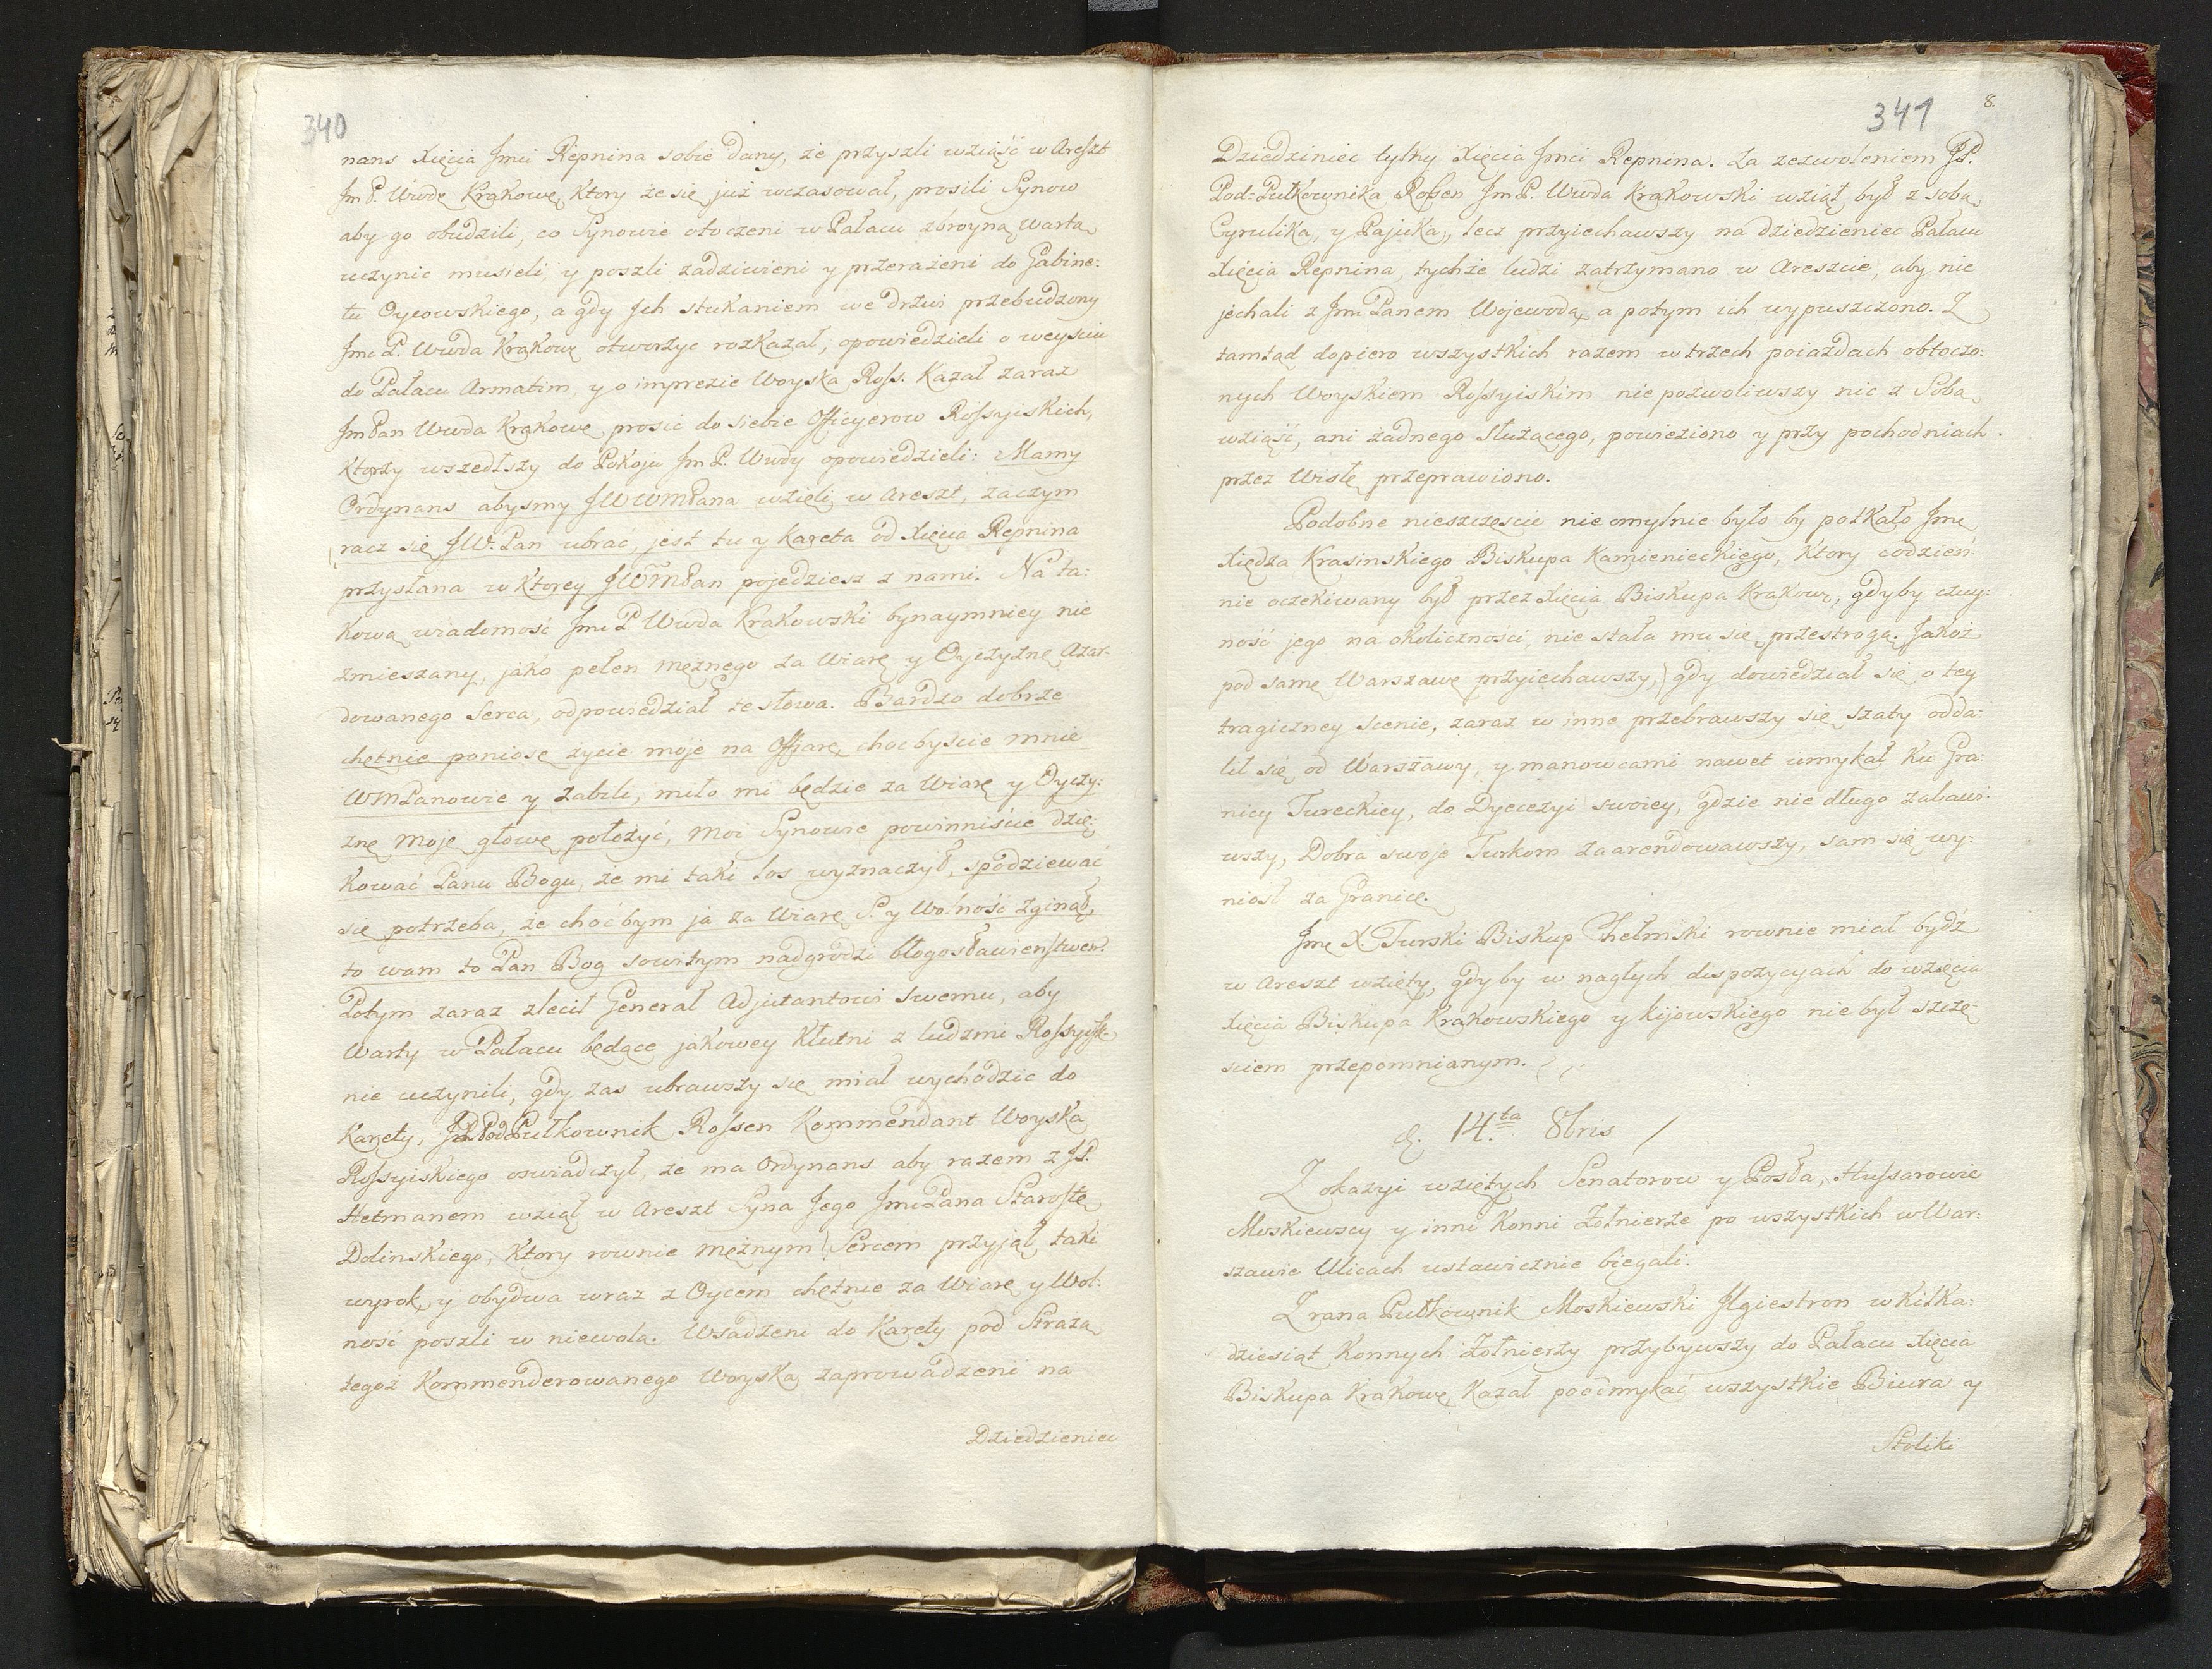 340
nans Xięcia Jmci Repnina sobie dany, że przyszli wziąść w Areszt
Jm P. Wwdę Krakowę, Ktory że się już wczasował, prosili Synow
aby go obudzili, co Synowie otoczeni w Pałacu zbroyną Wartą
uczynic musieli, y poszli zadziwieni y przerażeni do Gabine:
tu Oycowskiego, a gdy Jch stukaniem we drzwi przebudzony
Jmc P. Wwda Krakowę otworzyc rozkazał, opowiedzieli o weysciu
do Pałacu Armatim, y o imprezie Woyska Ross. Kazał zaraz
Jm Pan Wwda Krakowę prosic do siebie Officyerow Rossyiskich,
Ktorzy wszedłszy do Pokoju Jm P. Wwdy opowiedzieli: Mamy
Ordynans abysmy JWWMPana wzieli w Areszt, zaczym
racz się JW. Pan ubrać, jest tu y Kareta od Xięcia Repnina
przysłana w Ktorey JWWMPan pojedziesz z nami. Na ta:
Kową wiadomość Jmc P Wwda Krakowski bynaymniey nie
zmieszany, jako pełen mężnego za Wiarę y Oyczyznę Azar-
dowanego Serca, odpowiedział te słowa. Bardzo dobrze
chętnie poniosę zycie moje na Offiarę, chocbyscie mnie
WMPanowie y zabili, miło mi będzie za Wiarę y Oyczy:
znę moję głowę położyć, Moi Synowie powinniście dzię:
kować Panu Bogu, że mi taki los wyznaczył, spodziewać
się potrzeba, że choćbym ja za Wiarę S. y Wolność zginął,
to wam to Pan Bog sowitym nadgrodzi błogosławienstwem.
Potym zaraz zlecił Generał Adjutantowi swemu, aby
Warty w Pałacu będące jakowey Kłutni z ludzmi Rossyisk.
nie uczynili, gdy zas ubrawszy się miał wychodzic do
Karety, JP PodPułkownik Rossen Kommendant Woyska
Rossyiskiego oswiadczył, że ma Ordynans aby razem z JP.
Hetmanem wziął w Areszt Syna Jego JmcPana Starostę
Dolinskiego, Ktory rownie mężnym Sercem przyjął taki
wyrok, y obydwa wraz z Oycem chętnie za Wiarę y Wol:
ność poszli w niewolą. Wsadzeni do Karety pod Strażą
tegoż Kommenderowanego Woyska zaprowadzeni na
Dziedzieniec
341
8.
Dziedziniec tylny Xięcia Jmci Repnina. Za zezwoleniem JP.
Pod=Pułkownika Rossen Jm P. Wwda Krakowski wziął był z sobą
Cyrulika, y Pajuka, lecz przyiechawszy na dziedzieniec Pałacu
Xięcia Repnina, tychże ludzi zatrzymano w Areszcie, aby nie
jechali z Jmc Panem Wojewodą, a potym ich wypuszczono. Z
tamtąd dopiero wszystkich razem w trzech poiazdach obtoczo:
nych Woyskiem Rossyiskim nie pozwoliwszy nic z Sobą
wziąść, ani żadnego Służącego, powieziono y przy pochodniach
przez Wisłę przeprawiono.
Podobne nieszczęscie nieomylnie było by potkało Jmę
Xiędza Krasinskiego Biskupa Kamienieckiego, Ktory codzień:
nie oczekiwany był przez Xięcia Biskupa Krakowę, gdyby czuy:
ność jego na okoliczności, nie stała mu się przestrogą. Jakoż
pod samę Warszawę przyiechawszy, gdy dowiedział się o tey
tragiczney scenie, zaraz w inne przebrawszy się szaty odda:
lił się od Warszawy, y manowcami nawet umykał Ku Gra:
nicy Tureckiey, do Dyecezyi swoiey, gdzie nie długo zabawi:
wszy, Dobra swoje Turkom zaarendowawszy, sam się wy:
niosł za Granicę.
Jmę X. Turski Biskup Chełmski rownie miał bydź
w Areszt wzięty, gdyby w nagłych dispozycyach do wzięcia
Xięcia Biskupa Krakowskiego y Kijowskiego nie był szczę-
sciem przepomnianym.
d. 14.ta 8bris /
Z okazyi wziętych Senatorow y Posła, Hussarowie
Moskiewscy y inni Konni Żołnierze po wszystkich w War:
szawie Ulicach ustawicznie biegali.
Z rana Pułkownik Moskiewski Jlgiestron w kilka:
dziesiąt Konnych Żołnierzy przybywszy do Pałacu Xięcia
Biskupa Krakowę Kazał poodmykać wszystkie Biura y
Stoliki